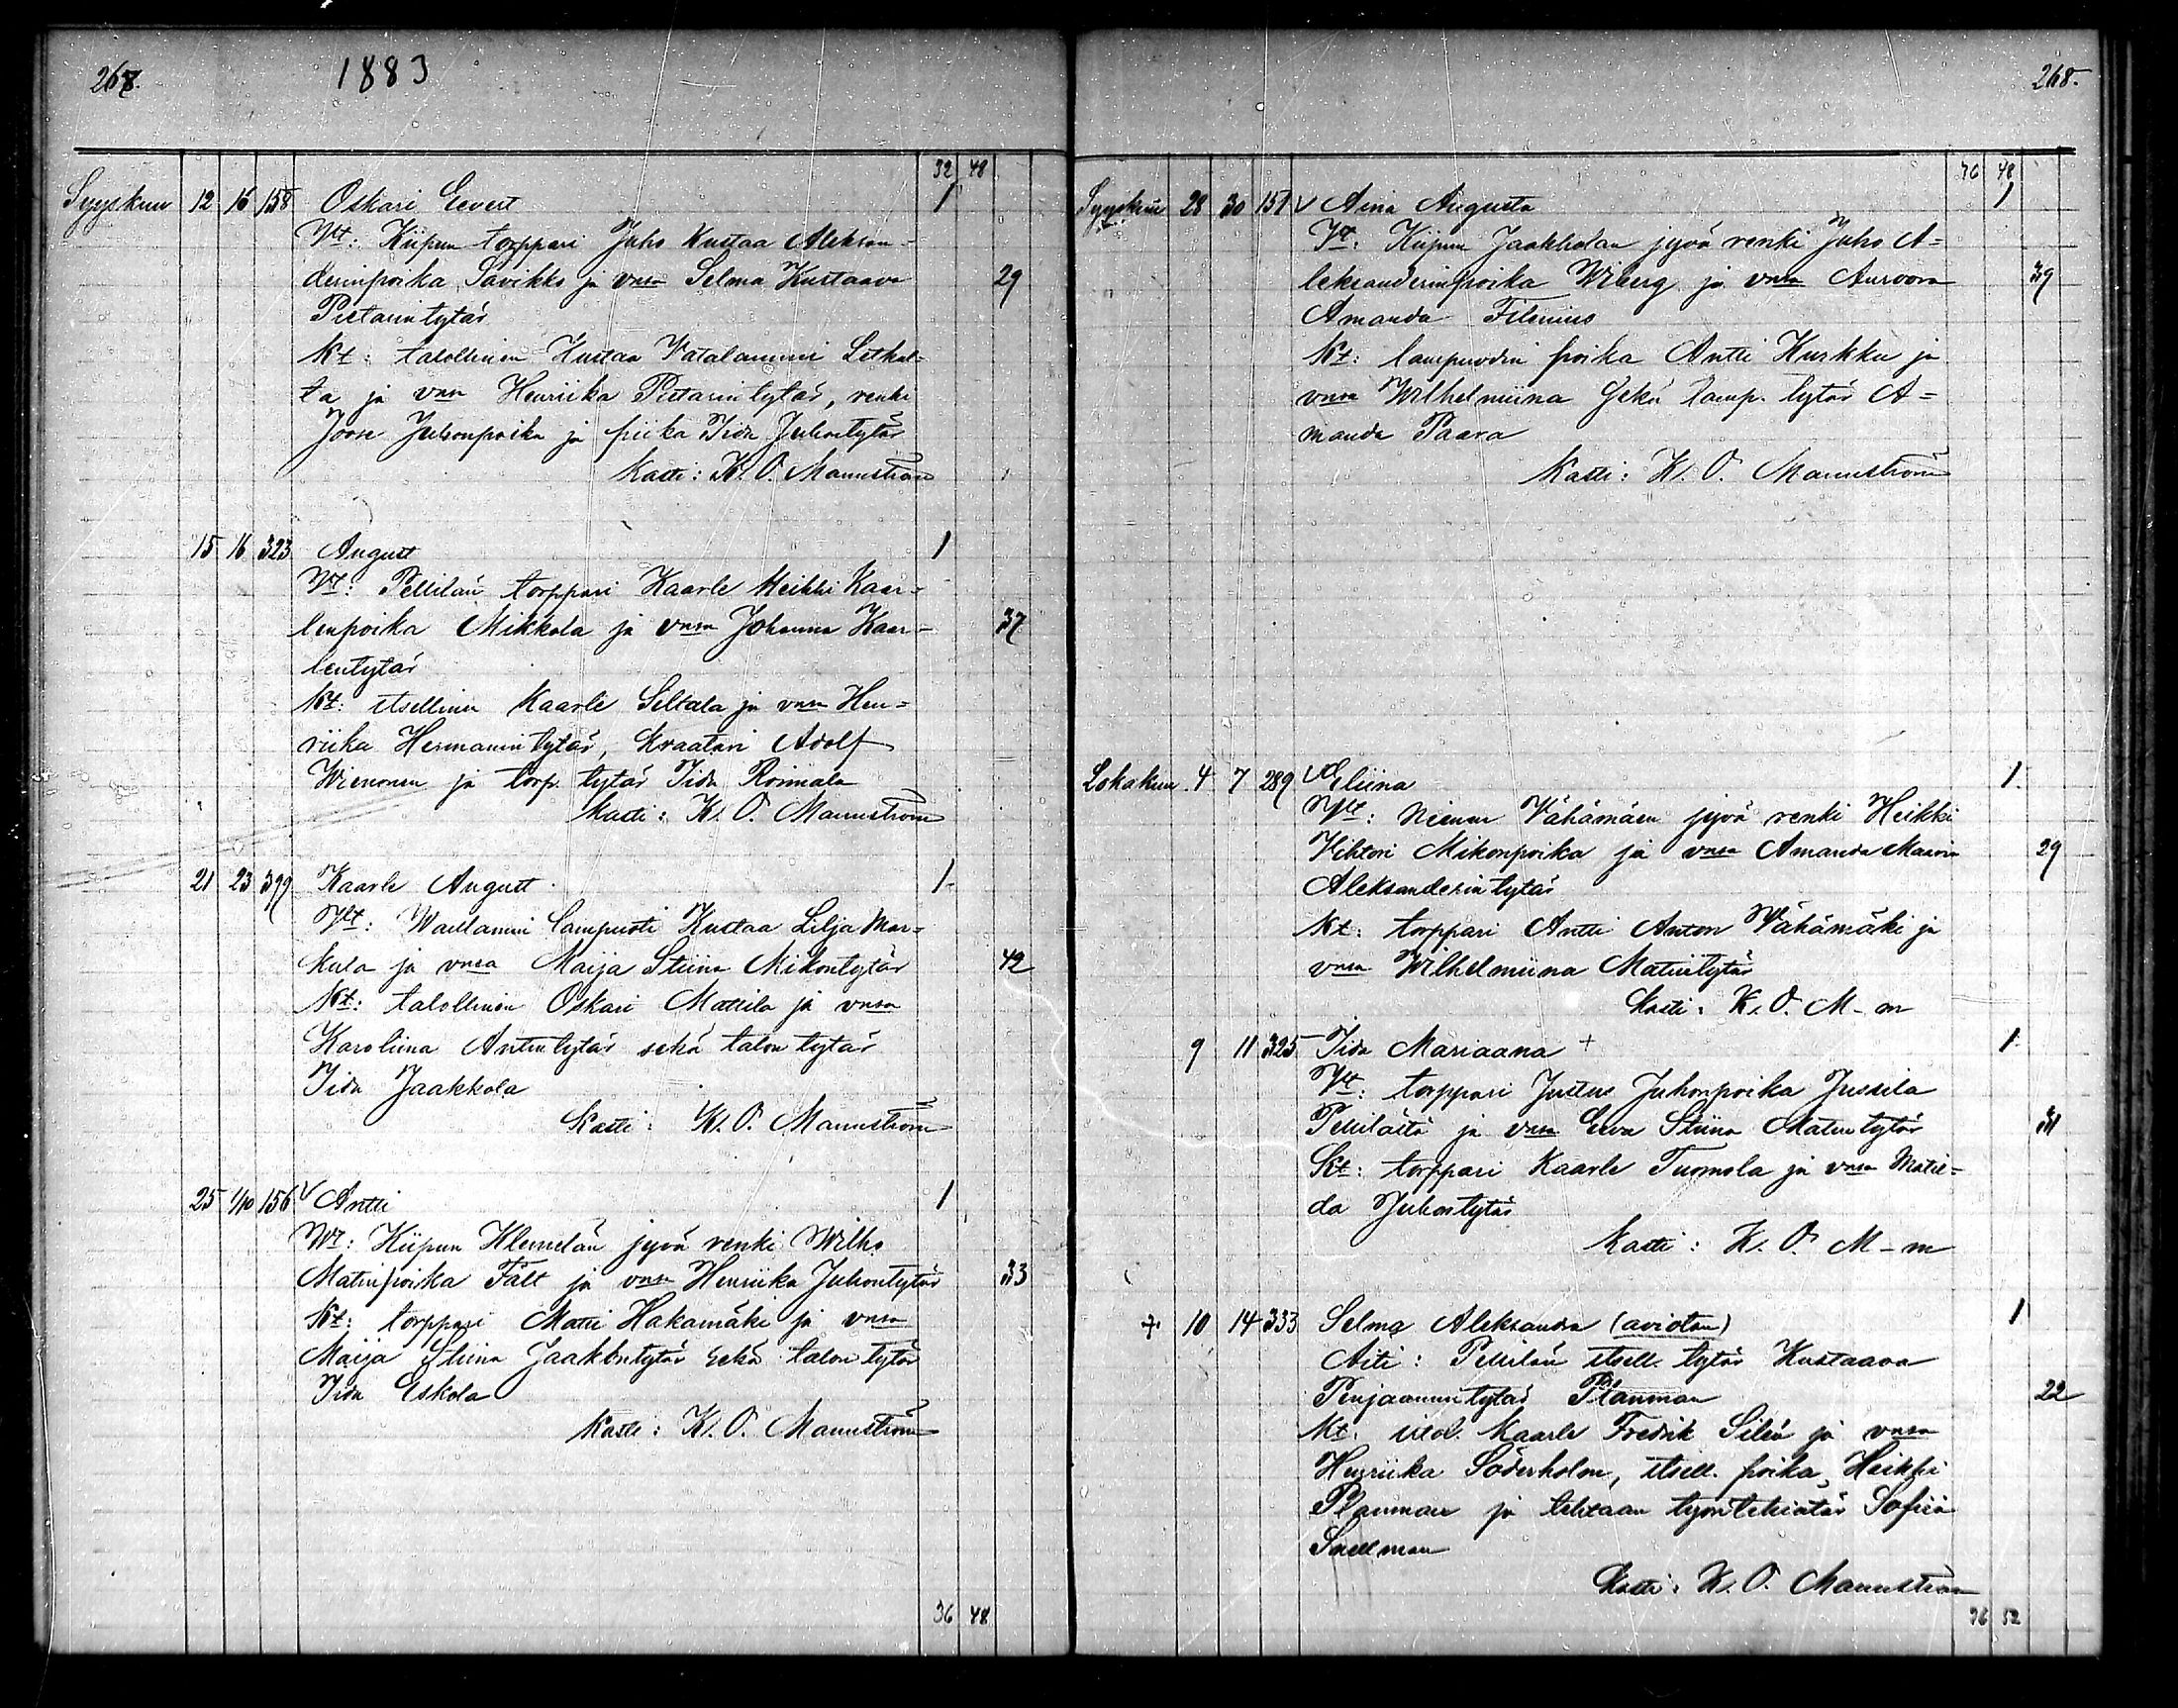 267. 1883
32 48
Syyskuu 12 16 158 Oskari Eevert 1
Vt: Kiipun torppari Juho Kustaa Aleksan-
derinpoika Savikko ja vmsa Selma Kustaava 29
Pietarintytär
Kt: talollinen Kustaa Vatalammi Letkul-
ta ja vmsa Henriika Pietarintytär, renki
Joose Juhonpoika ja piika Iida Juhontytär
Kasti: K. O. Mannström
15 16 323 August 1
Vt: Pellilän torppari Kaarle Heikki Kaar-
lenpoika Mikkola ja vmsa Johanna Kaar- 37
lentytär
Kt: itsellinen Kaarle Seltala ja vmsa Hen-
riika Hermanintytär, kraatari Adolf
Wienonen ja torp. tytär Iida Roimala
Kasti: K. O. Mannström
21 23 399 Kaarle August 1
Vt: lampuoti Kustaa Lilja Mar-
kula ja vmsa Maija Stiina Mikontytär 42
Kt: talollinen Oskari Mattila ja vmsa
Karoliina Antintytär sekä talon tytär
Iida Jaakkola
Kasti: K. O. Mannström
25 1/10 156 v Antti 1
Vt: Kiipun Klemelän jyvä renki Wilho
Matinpoika Fält ja vmsa Henriika Juhontytär 33
Kt: torppari Matti Hakamäki ja vmsa
Maija Stiina Jaakontytär sekä talon tytär
Iida Eskola
Kasti: K. O. Mannström
36 48
268.
36 48
Syyskuu 28 30 151 v Aina Augusta 1
Vt: Kiipun Jaakkolan jyvä renki Juho A-
leksanderinpoika Wiberg ja vmsa Auroora 39
Amanda Filenius
Kt: lampuodin poika Antti Kurkku ja
vmsa Wilhelmiina sekä lamp. tytär A-
manda Paava
Kasti: K. O. Mannström
Lokakuu 4 7 289 v Eliina 1
Vt: Niemen Vähämäen jyvä renki Heikki
Vihtori Mikonpoika ja vmsa Amanda Maaria 29
Aleksanderintytär
Kt: torppari Antti Anton Vähämäki ja
vmsa Wilhelmiina Matintytär
Kasti: K. O. M-m
9 11 325 Iida Mariaana + 1
Vt: torppari Justus Juhonpoika Jussila
Pellilästä ja vmsa Eeva Stiina Matintytär 31
Kt: torppari Kaarle Tuomola ja vmsa Matil-
da Juhontytär
Kasti: K. O. M-m
+ 10 14 333 Selma Aleksandra (aviotan) 1
Äiti: Pellilän itsell. tytär Kustaava
Penjaamintytär Planman 22
Kt. Kaarle Fredrik Silén ja vmsa
Henriika Söderholm, itsell. poika Heikki
Planman ja tehtaan työntekiätär Sofiia
Snellman
Kasti: K. O. Mannström
36 52